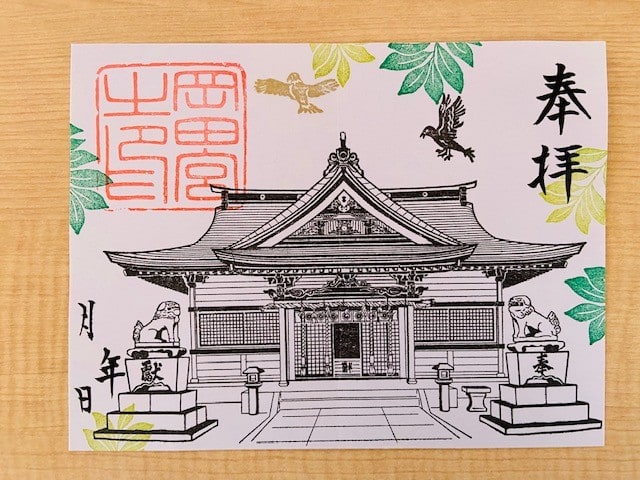 奉拝
岡田宮
之印
奉
獻
年
月 日